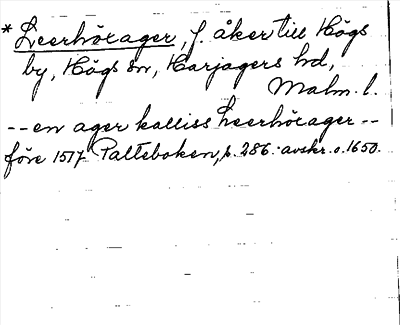 *Leerhöeager, f. åker till Högs
by, Högs sn, Harjagers hd,
Malm. l.
--en ager kalliss Leerhöeager--
före 1517 Palteboken, s. 286. avskr. o. 1650.